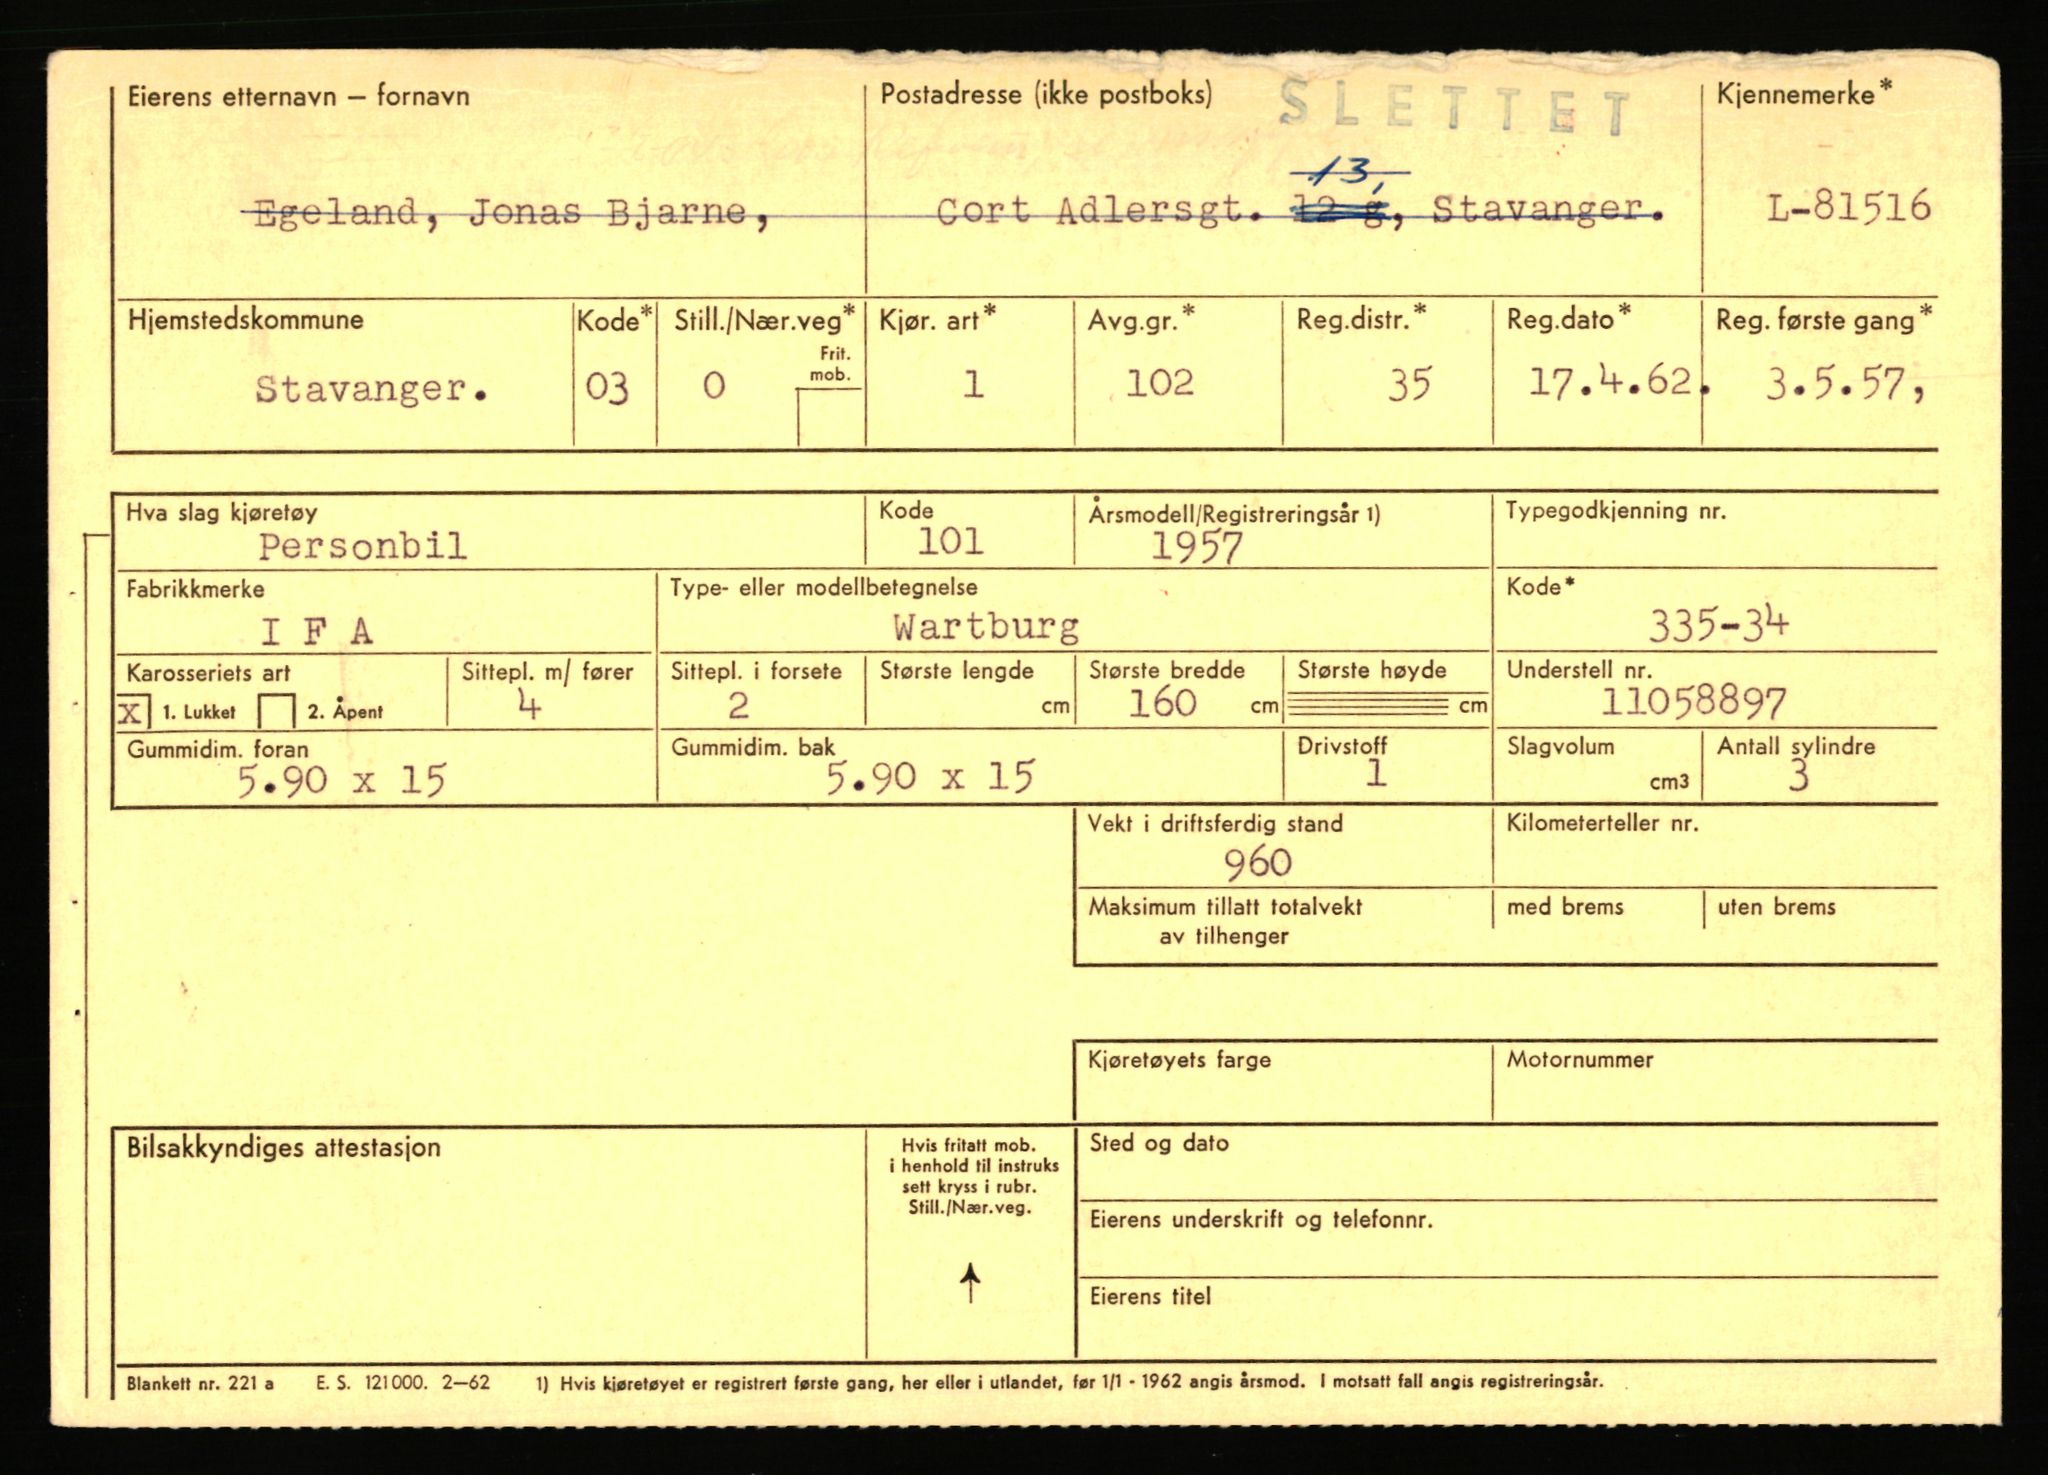 Eierens etternavn – fornavn
Postadresse (ikke postboks)
SLETTET
Kjennemerke*
13,
Egeland, Jonas Bjarne,
Cort Adlersgt. 12 g, Stavanger.
L-81516
Hjemstedskommune
Kode*
Still./Nær.veg*
Kjør. art*
Avg.gr.*
Reg.distr.*
Reg.dato*
Reg. første gang*
Frit.
mob.
Stavanger.
03
0
1
102
35
17.4.62.
3.5.57,
Hva slag kjøretøy
Personbil
Kode
101
Årsmodell/Registreringsår 1)
1957
Typegodkjenning nr.
Fabrikkmerke
I F A
Type- eller modellbetegnelse
Wartburg
Kode*
335-34
Karosseriets art
X 1. Lukket 2. Åpent
Sittepl. m/ fører
4
Sittepl. i forsete
2
Største lengde
cm
Største bredde
160 cm
Største høyde
cm
Understell nr.
11058897
Gummidim. foran
5.90 x 15
Gummidim. bak
5.90 x 15
Drivstoff
1
Slagvolum
cm3
Antall sylindre
3
Vekt i driftsferdig stand
960
Kilometerteller nr.
Maksimum tillatt totalvekt
av tilhenger
med brems
uten brems
Kjøretøyets farge
Motornummer
Bilsakkyndiges attestasjon
Hvis fritatt mob.
i henhold til instruks
sett kryss i rubr.
Still./Nær.veg.
Sted og dato
Eierens underskrift og telefonnr.
Eierens titel
Blankett nr. 221 a E. S. 121000. 2–62 1) Hvis kjøretøyet er registrert første gang, her eller i utlandet, før 1/1 - 1962 angis årsmod. I motsatt fall angis registreringsår.